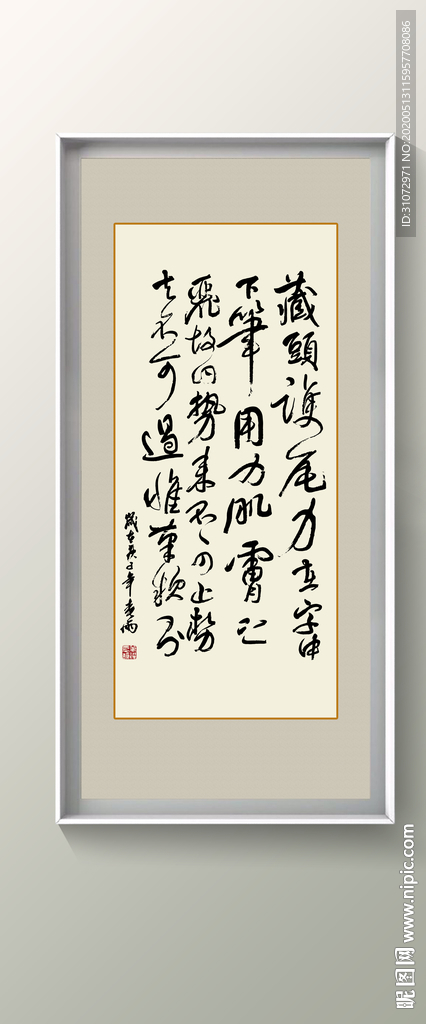 藏頭護尾力在字中
下筆用力肌膚之
麗故曰勢來不可止勢
去不可遏惟筆軟則
歲在庚子年
ID:31072971 NO:20200513115957708086
昵图网 www.nipic.com